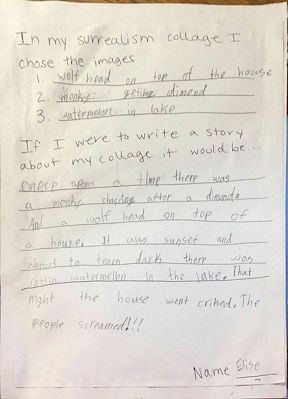 In my surrealism collage I
chose the images
1. wolf head on top of the house
2. monky geting dimond
3. watermelon in lake
If I were to write a story
about my collage it would be...
a time there was
a monky chasing after a dimonde
And a wolf head on top of
a house. It was sunset and
about to tearn dark there was
rottin watermelon in the lake. That
night the house went criked. The
people screamed!!!
Name Elise